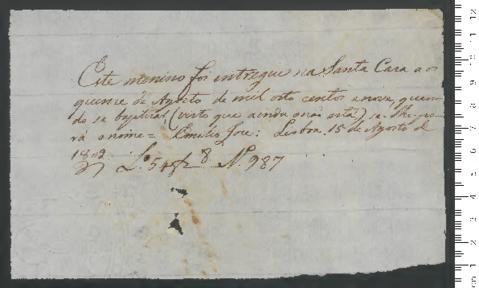 Este menino foi entregue na Santa Caza aos
quinse de Agosto de mil oito centos e nove, quan
do se baptizar (visto que ainda o não está) se lhe po
rá o nome = Emilio Joze: Lisboa 15 de Agosto de
1809
Lº 5 8 Nº 987